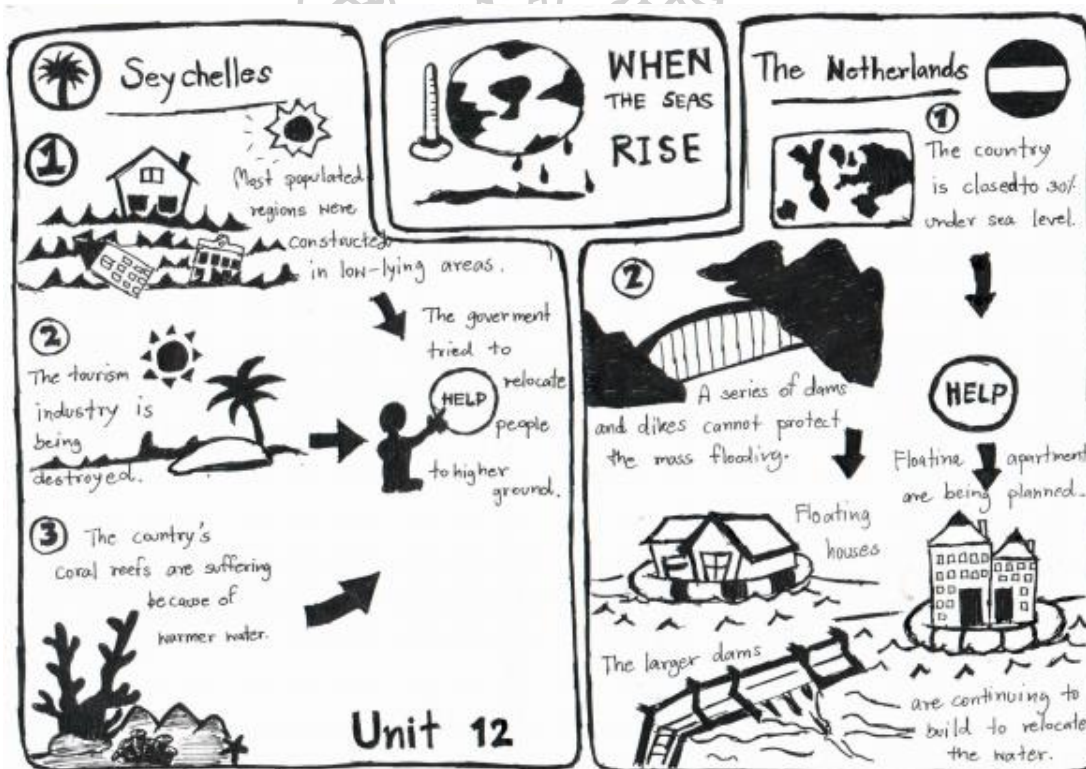 WHEN
THE SEAS
RISE
Seychelles
1
Most populated
regions were
constructed
in low-lying areas.
2
The tourism
industry is
being
destroyed.
3
The country's
coral reefs are suffering
because of
warmer water.
The goverment
tried to
relocate
HELP
people
to higher
ground.
Unit 12
The Netherlands
1
The country
is closed to 30%
under sea level.
2
A series of dams
and dikes cannot protect
the mass flooding.
HELP
Floating apartment
are being planned.
Floating
houses
The larger dams
are continuing to
build to relocate
the water.